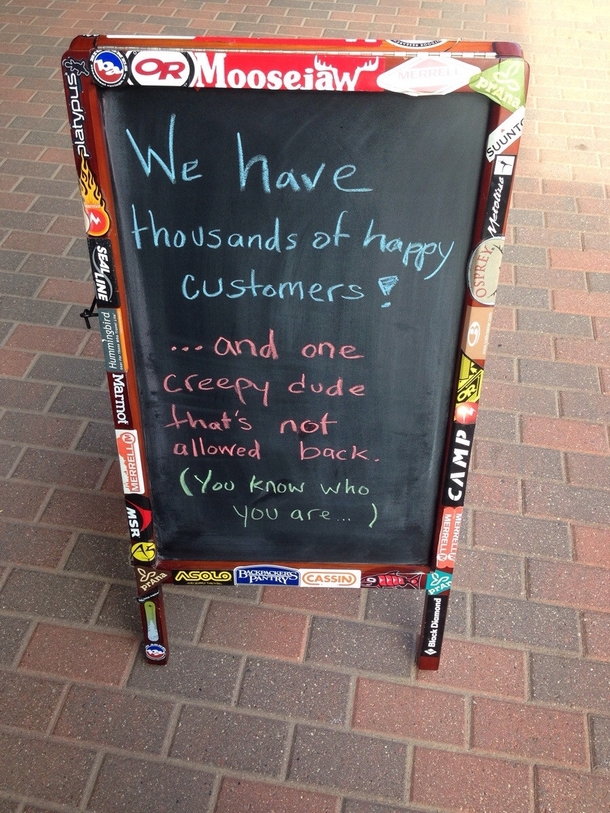 OR
Moosejaw
MERRELL
prAna
platypus
SUUNTO
Metolius
SEAL LINE
OSPREY
Hummingbird
Marmot
MERRELL
MSR
CAMP
MERRELL
MERRELL
We have
thousands of happy
customers!
...and one
creepy dude
that's not
allowed back.
(You know who
you are...)
prAna
ASOLO
BACKPACKER'S
PANTRY
CASSIN
prAna
Black Diamond